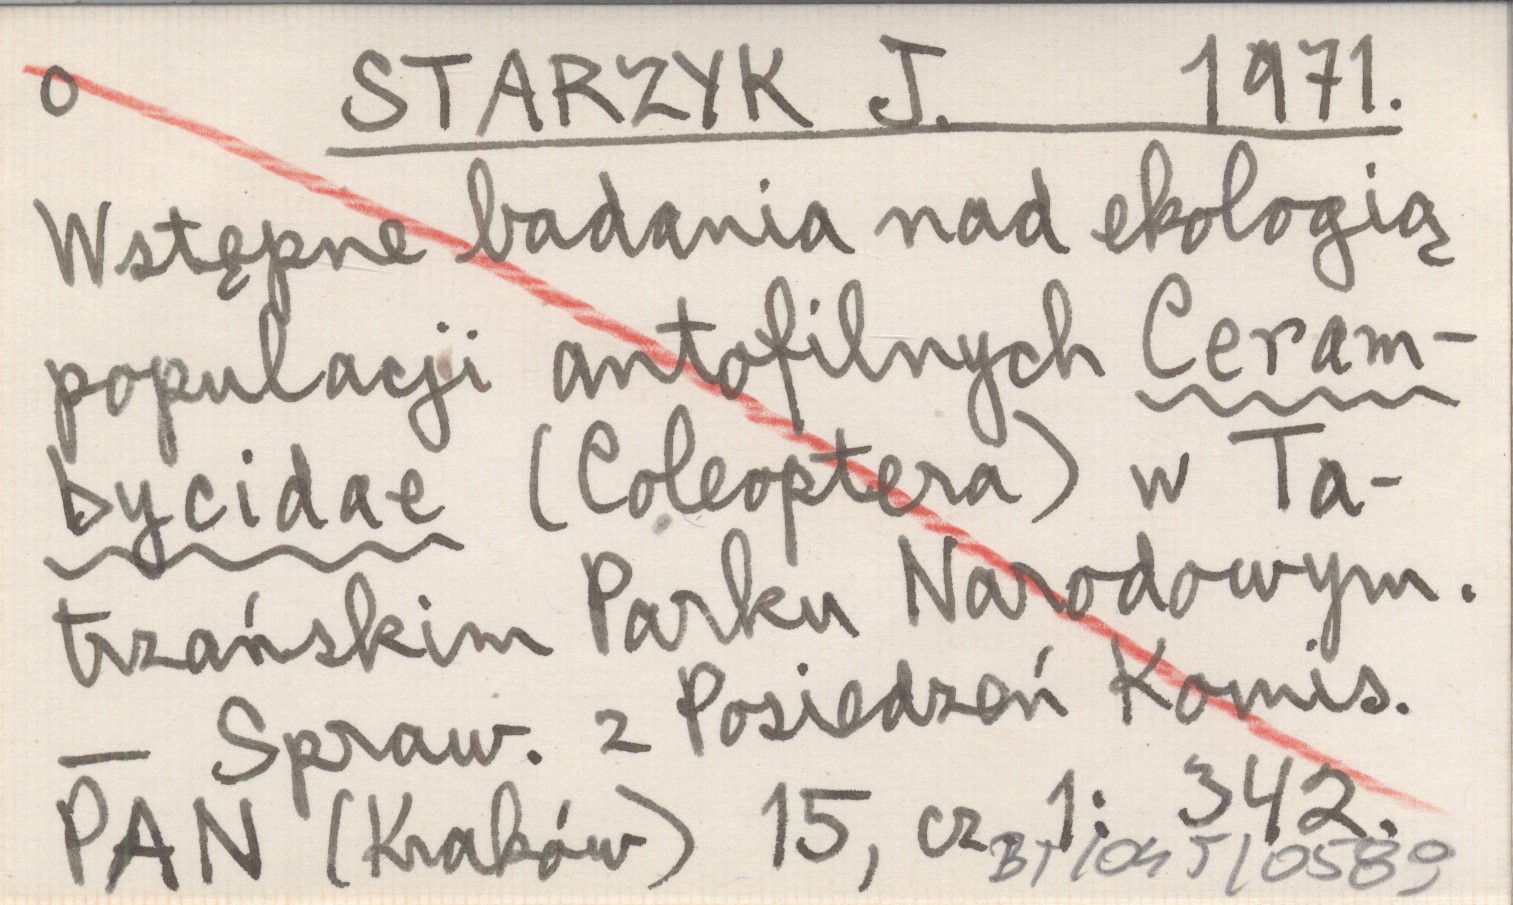 o STARZYK J. 1971.
Wstępne badania nad ekologią
populacji antofilnych Ceram-
bycidae (Coleoptera) w Ta-
trzańskim Parku Narodowym.
— Spraw. z Posiedzeń Komis.
PAN (Kraków) 15, cz. 1: 342.